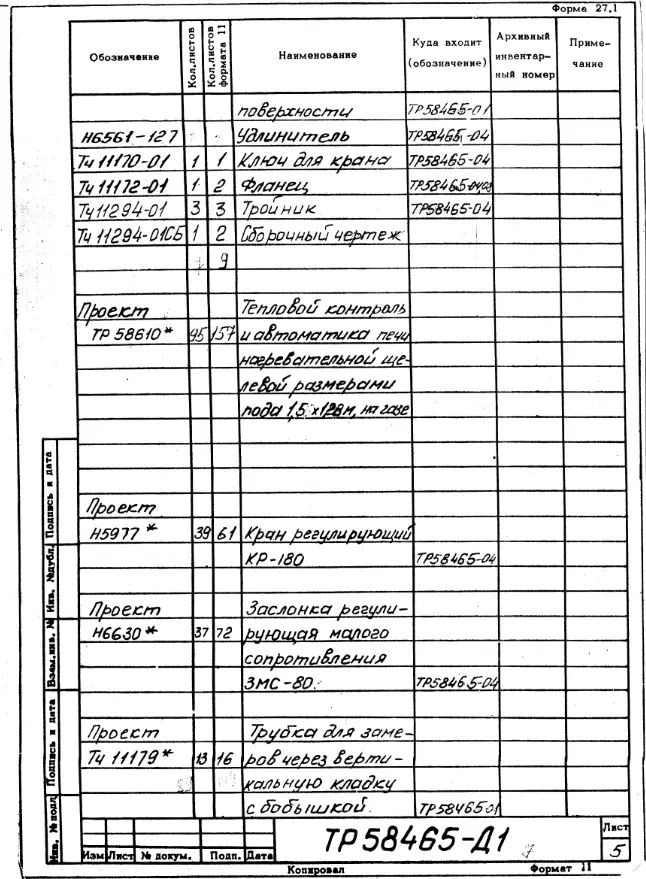 Форма 27.1
Обозначение Кол.листов Кол.листов формата 11 Наименование Куда входит (обозначение) Архивный инвентарный номер Примечание
поверхности ТР58465-01
Н6561-127 Удлинитель ТР58465-04
Тч 11170-01 1 1 Ключ для крана ТР58465-04
Тч 11172-01 1 2 Фланец
Тч 11294-01 3 3 Тройник ТР58465-04
Тч 11294-01СБ 1 2 Сборочный чертеж
9
Проект Тепловой контроль
ТР 58610* 95 157 и автоматика печи
нагревательной ще-
левой размерами
пода на газе
Проект
Н5977* 39 61 Кран регулирующий
КР-180 ТР58465-04
Проект Заслонка регули-
Н6630* 37 72 рующая малого
сопротивления
ЗМС-80. ТР58465-04
Проект Трубка для заме-
Тч 11179* 13 16 ров через верти-
кальную кладку
с бобышкой. ТР58465-01
Инв. № подл. Подпись и дата Взам.инв. № Инв. №дубл. Подпись и дата
ТР58465-Д1
Лист
5
Изм Лист № докум. Подп. Дата
Копировал Формат 11